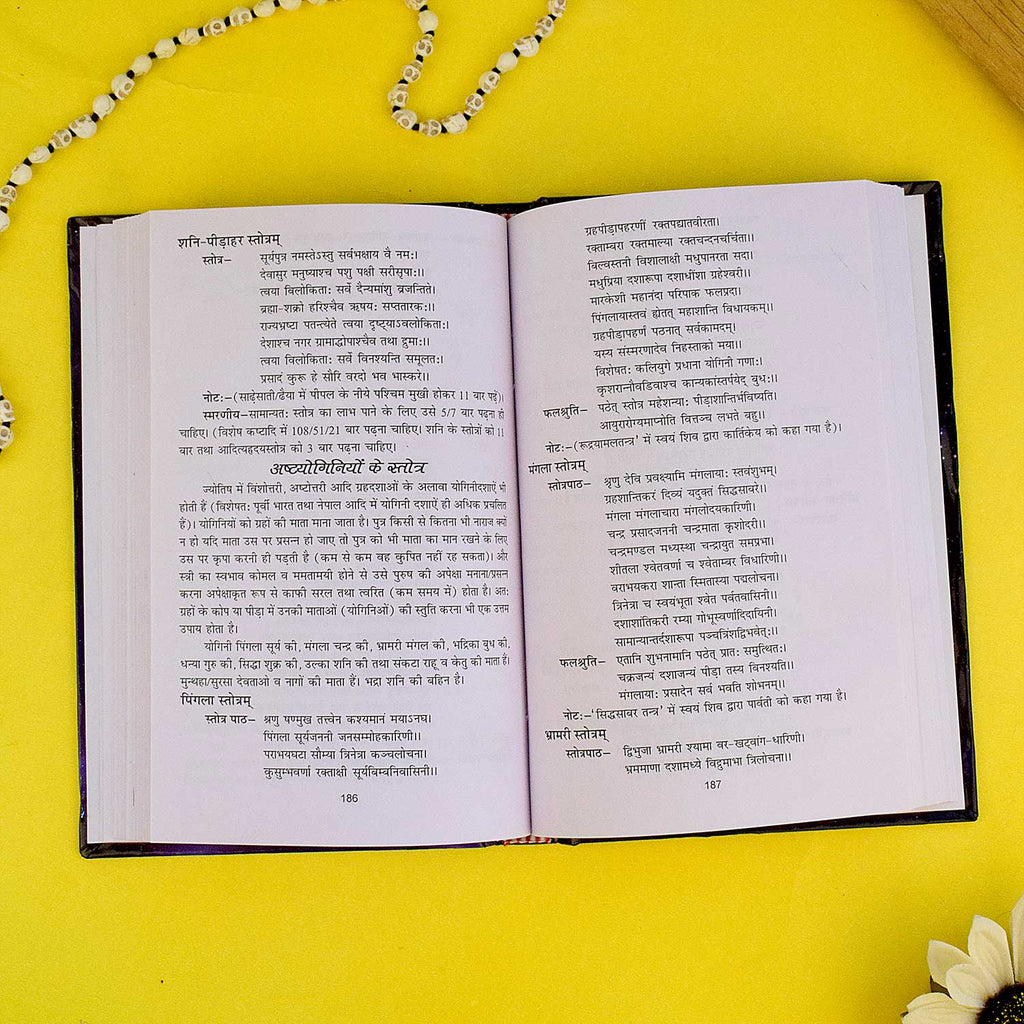 शनि-पीड़ाहर स्तोत्रम्
स्तोत्र– सूर्यपुत्र नमस्तेऽस्तु सर्वभक्षाय वै नमः।
देवासुर मनुष्याश्च पशु पक्षी सरीसृपाः।।
त्वया विलोकिताः सर्वे दैन्यमांशु व्रजन्तिते।
ब्रह्मा-शक्रो हरिश्चैव ऋषयः सप्ततारकः।।
राज्यभ्रष्टा पतन्त्येते त्वया दृष्ट्याऽवलोकिताः।
देशाश्च नगर ग्रामाद्धोपाश्चैव तथा द्रुमाः।।
त्वया विलोकिताः सर्वे विनश्यन्ति समूलतः।
प्रसादं कुरू हे सौरि वरदो भव भास्करे।।
नोटः–(साढ़ेसाती/ढैया में पीपल के नीचे पश्चिम मुखी होकर 11 बार पढ़ें)।
स्मरणीय–सामान्यतः स्तोत्र का लाभ पाने के लिए उसे 5/7 बार पढ़ना ही
चाहिए। (विशेष कष्टादि में 108/51/21 बार पढ़ना चाहिए। शनि के स्तोत्रों को 11
बार तथा आदित्यहृदयस्तोत्र को 3 बार पढ़ना चाहिए।
अष्टयोगिनियों के स्तोत्र
ज्योतिष में विंशोत्तरी, अष्टोत्तरी आदि ग्रहदशाओं के अलावा योगिनीदशाऐं भी
होती हैं (विशेषतः पूर्वी भारत तथा नेपाल आदि में योगिनी दशाऐं ही अधिक प्रचलित
है)। योगिनियों को ग्रहों की माता माना जाता है। पुत्र किसी से कितना भी नाराज क्यों
न हो यदि माता उस पर प्रसन्न हो जाए तो पुत्र को भी माता का मान रखने के लिए
उस पर कृपा करनी ही पड़ती है (कम से कम वह कुपित नहीं रह सकता)। और
स्त्री का स्वभाव कोमल व ममतामयी होने से उसे पुरुष की अपेक्षा मनाना/प्रसन्न
करना अपेक्षाकृत रूप से काफी सरल तथा त्वरित (कम समय में) होता है। अतः
ग्रहों के कोप या पीड़ा में उनकी माताओं (योगिनिओं) की स्तुति करना भी एक उत्तम
उपाय होता है।
योगिनी पिंगला सूर्य की, मंगला चन्द्र की, भ्रामरी मंगल की, भद्रिका बुध की,
धन्या गुरु की, सिद्धा शुक्र की, उल्का शनि की तथा संकटा राहू व केतु की माता हैं।
मुन्थहा/सुरसा देवताओ व नागों की माता हैं। भद्रा शनि की बहिन है।
पिंगला स्तोत्रम्
स्तोत्र पाठ– श्रणु षण्मुख तत्त्वेन कश्यमानं मयाऽनघ।
पिंगला सूर्यजननी जनसम्मोहकारिणी।।
पराभयघटा सौम्या त्रिनेत्रा कञ्चलोचना।
कुसुम्भवर्णा रक्ताक्षी सूर्यबिम्बनिवासिनी।।
186
ग्रहपीड़ापहरणीं रक्तपद्यातवीरता।
रक्ताम्बरा रक्तमाल्या रक्तचन्दनचर्चिता।।
विल्वस्तनी विशालाक्षी मधुपानरता सदा।
मधुप्रिया दशारूपा दशाधींशा ग्रहेश्वरी।।
मारकेशी महानंदा परिपाक फलप्रदा।
पिंगलायास्तवं ह्येतत् महाशान्ति विधायकम्।।
ग्रहपीड़ापहर्णं पठनात् सर्वकामदम्।
यस्य संस्मरणादेव निहस्ताको मया।।
विशेषतः कलियुगे प्रधाना योगिनी गणाः।
कृशरान्नौवडिवाश्च कान्यकांस्तर्पयेद् बुधः।।
फलश्रुति– पठेत् स्तोत्र महेशन्याः पीड़ाशान्तिर्भविष्यति।
आयुरारोग्यमाप्नोति वित्तञ्च लभते वहु।।
नोटः–(रूद्रयामलतन्त्र' में स्वयं शिव द्वारा कार्तिकेय को कहा गया है)।
मंगला स्तोत्रम्
स्तोत्रपाठ– श्रृणु देवि प्रवक्ष्यामि मंगलायाः स्तवंशुभम्।
ग्रहशान्तिकरं दिव्यं यदुक्तं सिद्धसावरे।।
मंगला मंगलाचारा मंगलोदयकारिणी।
चन्द्र प्रसादजननी चन्द्रमाता कृशोदरी।।
चन्द्रमण्डल मध्यस्था चन्द्रायुत समप्रभा।
शीतला श्वेतवर्णा च श्वेताम्बर विधारिणी।।
वराभयकरा शान्ता स्मितास्या पद्मलोचना।
त्रिनेत्रा च स्वयंभूता श्वेत पर्वतवासिनी।
दशाशांतिकरी रम्या गोभूस्वर्णादिदायिनी।
सामान्यान्तर्दशारूपा पञ्चत्रिंशद्विभवेत्ः।।
फलश्रुति– एतानि शुभनामानि पठेत् प्रातः समुत्थितः।
चक्रजन्यं दशाजन्यं पीड़ा तस्य विनश्यति।।
मंगलायाः प्रसादेन सर्व भवति शोभनम्।।
नोटः–'सिद्धसाबर तन्त्र' में स्वयं शिव द्वारा पार्वती को कहा गया है।
भ्रामरी स्तोत्रम्
स्तोत्रपाठ– द्विभुजा भ्रामरी श्यामा वर-खट्वांग-धारिणी।
भ्रममाणा दशामध्ये विद्रुमाभा त्रिलोचना।।
187